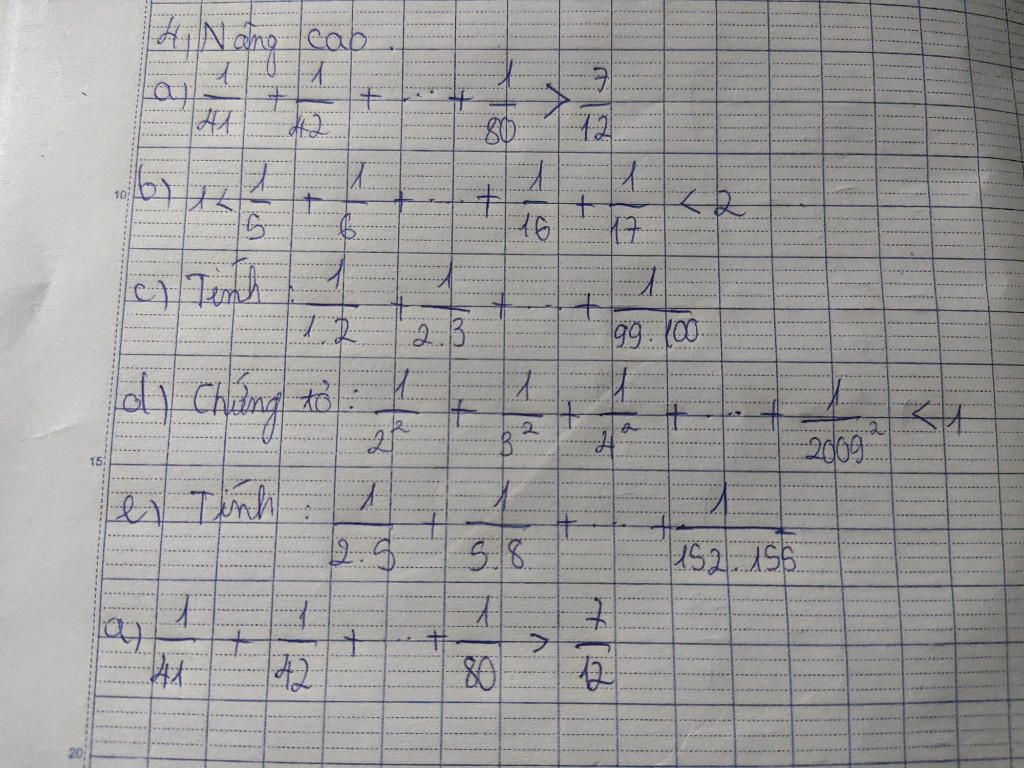 4, Nâng cao.
a) 1/41 + 1/42 + ... + 1/80 > 7/12
10
b) 1 < 1/5 + 1/6 + ... + 1/16 + 1/17 < 2
c) Tính : 1/1.2 + 1/2.3 + ... + 1/99.100
d) Chứng tỏ : 1/2² + 1/3² + 1/4² + ... + 1/2009² < 1
15
e) Tính : 1/2.5 + 1/5.8 + ... + 1/152.155
a) 1/41 + 1/42 + ... + 1/80 > 7/12
20